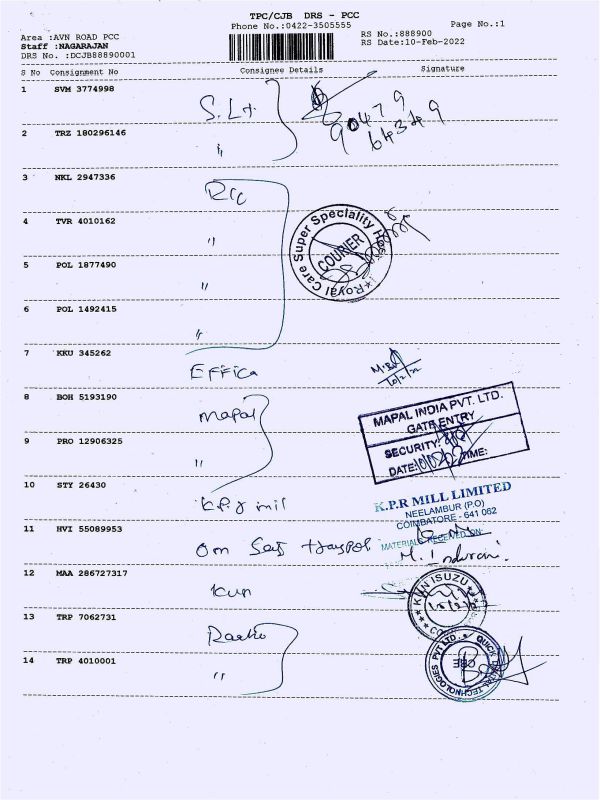 TPC/CJB DRS - PCC
Phone No.:0422-3505555
Page No.:1
Area :AVN ROAD PCC
Staff :NAGARAJAN
DRS No. :DCJB88890001
RS No.:888900
RS Date:10-Feb-2022
S No Consignment No Consignee Details Signature
1 SVM 3774998 S. Lt. 90479
64349
2 TRZ 180296146 "
3 NKL 2947336
4 TVR 4010162 "
Royal Care Super Speciality
COURIER
5 POL 1877490 "
6 POL 1492415 "
7 KKU 345262 Effica
10/2/22
8 BOH 5193190 Mapal
MAPAL INDIA PVT. LTD.
GATE ENTRY
9 PRO 12906325 "
SECURITY:
DATE: TIME:
10 STY 26430 K.P.R mil
K.P.R MILL LIMITED
NEELAMBUR (P.O)
COIMBATORE - 641 062
MATERIALS RECEIVED ON
11 HVI 55089953 Om Sai
M.
12 MAA 286727317 Kun
KUN ISUZU
13 TRP 7062731
14 TRP 4010001 "
QUICK TECHNOLOGIES PVT LTD.
CBE